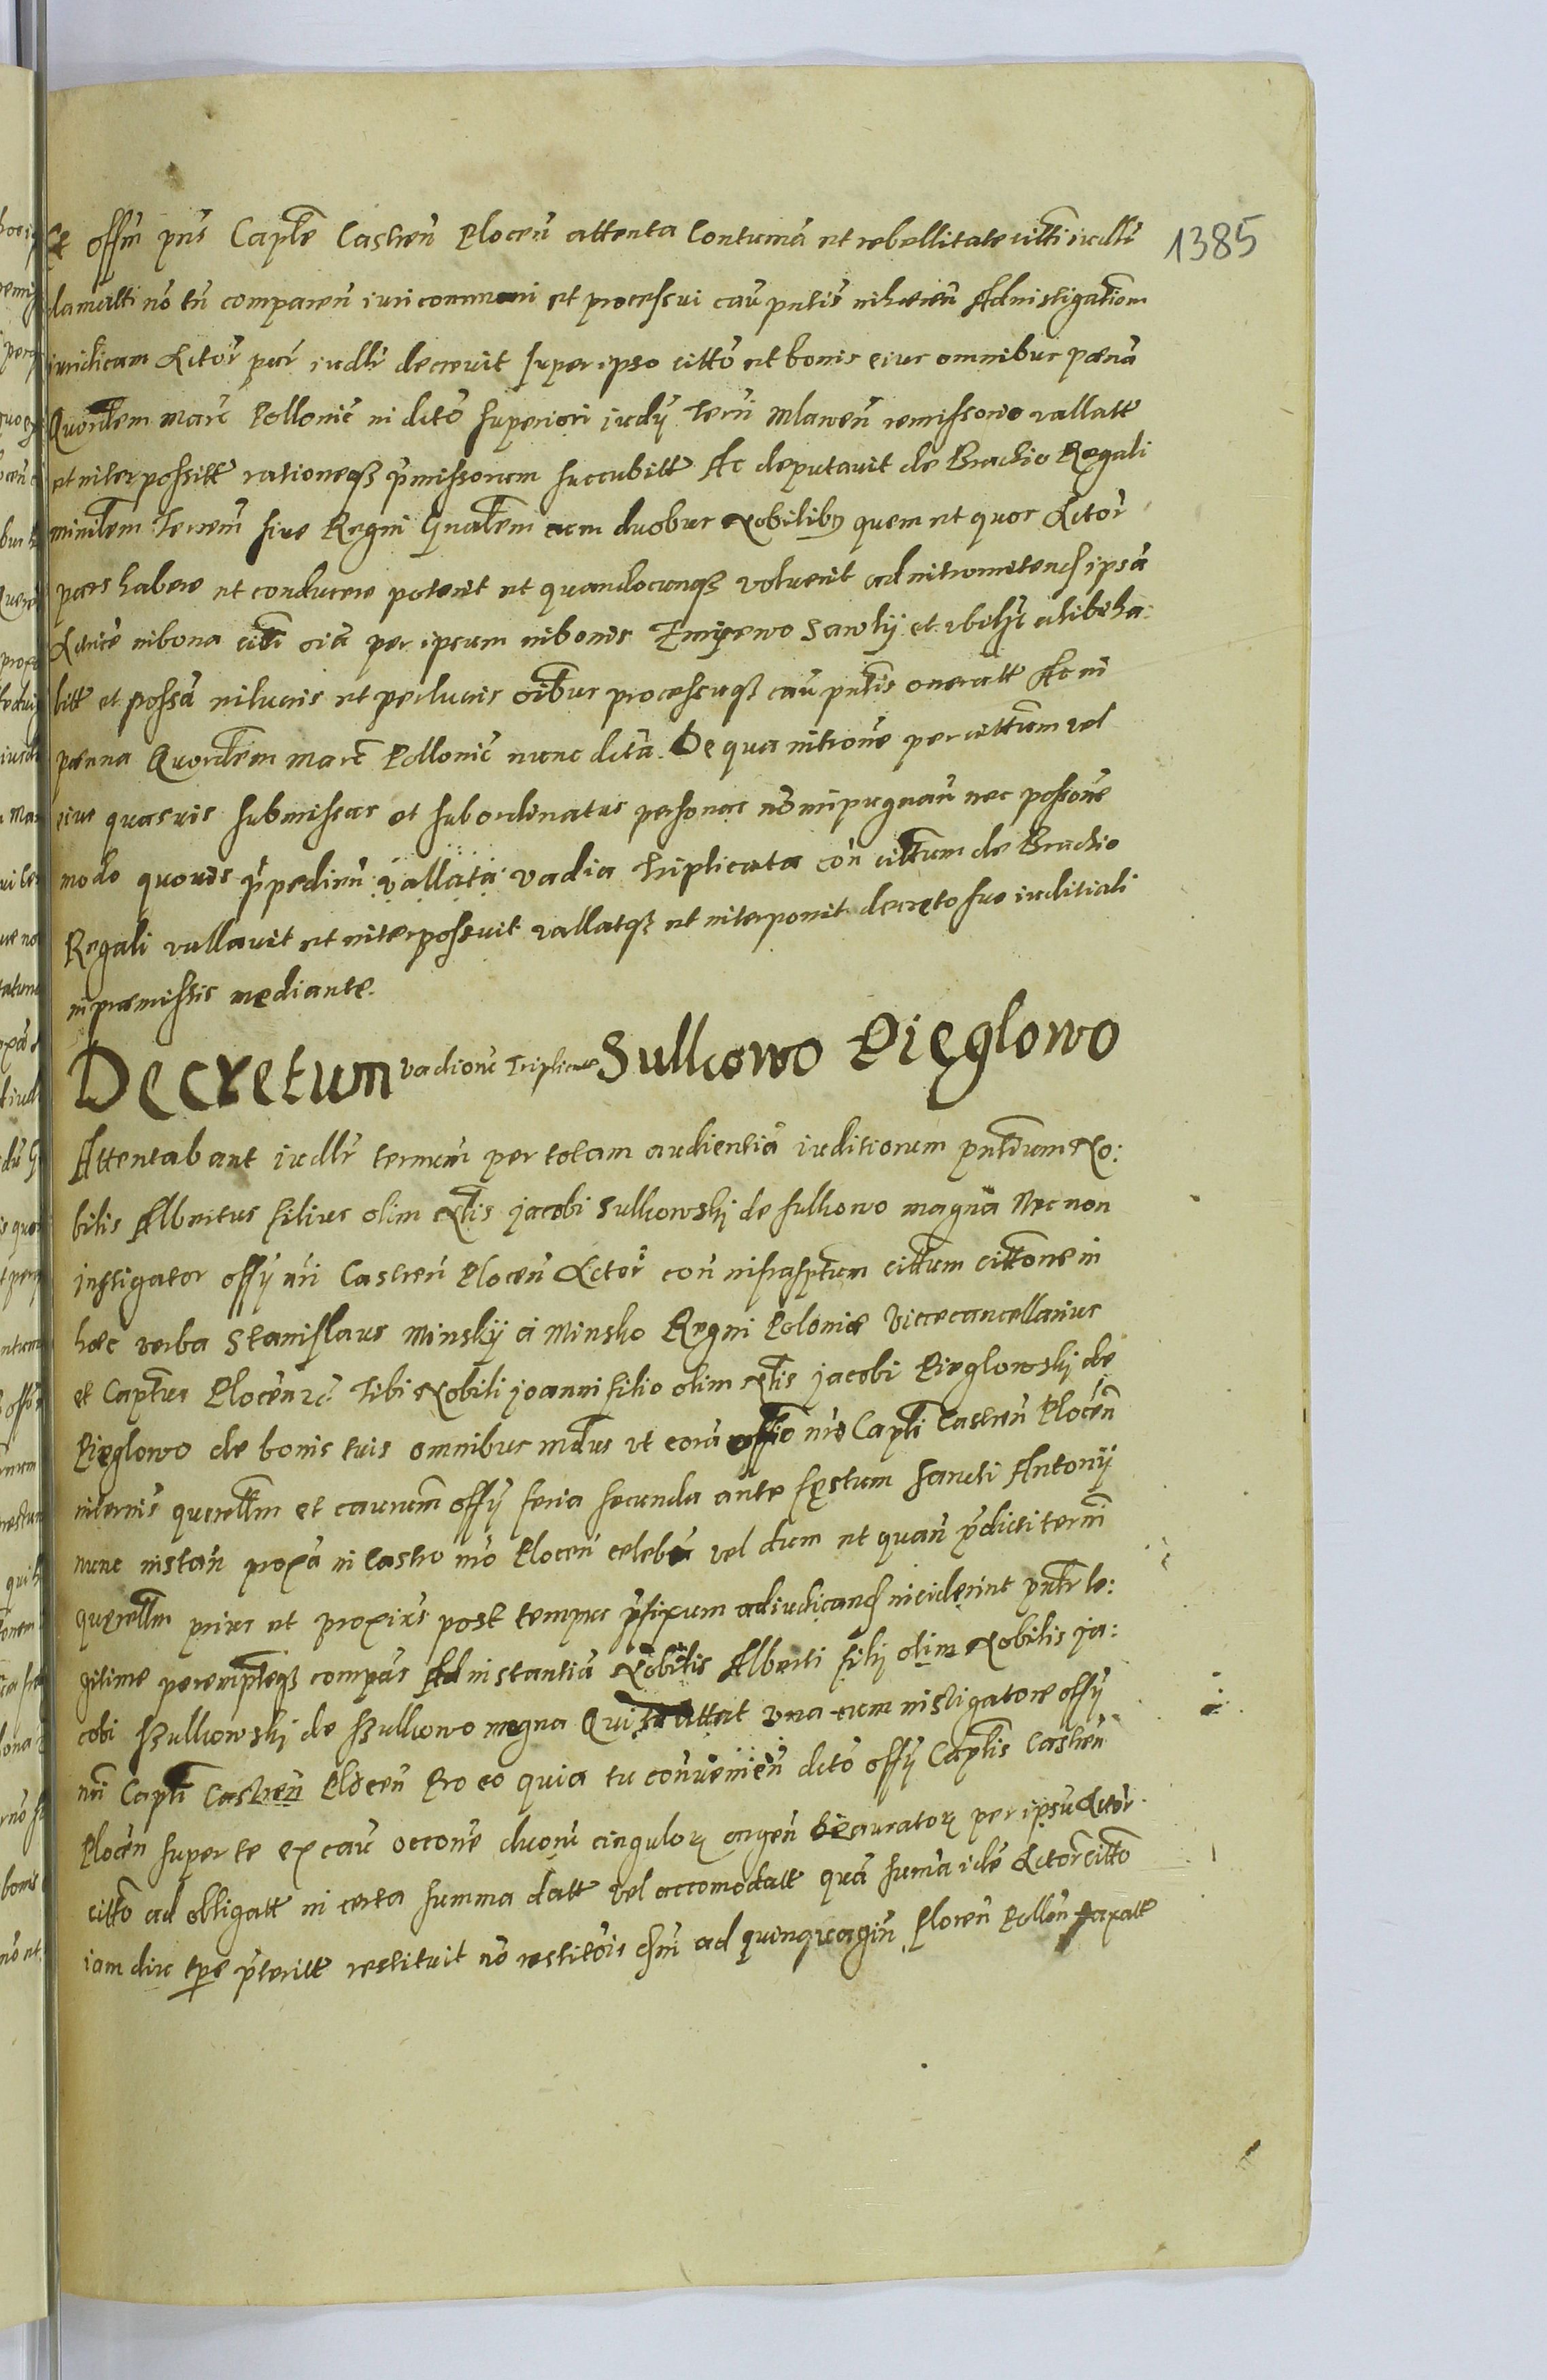 1385
Et offm pns Captle Castren Plocen attenta Contuma et rebellitate citti iudlr
clamatti no tn comparen iuri communi et processui cau pntis inhaeren Ad instigationem
iuridicam Actor par iudlr decrevit super ipso citto et bonis eius omnibus paena
Quordem marc Pollonic in dcto superiori iudy Terri Mlawen remissorio vallatt
et interpossitt rationeqz pmissorum succubitt Ac deputavit de Brachio Regali
minilem Terrem sive Regni Gnalem cum duobus Nobilibus quem et quos Actor
pars habere et conducere poterit et quandocunqz voluerit ad intromitend ipsa
Actore in bona citti oia per ipsum in bonis Zmijewo Sawly et ubilt alibi ha:
bitt et possa in lucris et perlucris oibus processuqz cau pntis oneratt Ac in
paena Quordem marc Pollonic nunc dcta. De qua introne per cittum vel
eius quasvis submissas et subordinatas personas no impugnan nec possone
modo quovis ppedien vallata vadia triplicata con cittum de Brachio
Regali vallavit et interpossuit vallatqz et interponit decreto suo iuditiali
in praemissis mediante.
Decretum vadione Triplicae Sulkowo Pięglowo
Attentabant iudlr termin per totam audientia iuditiorum pntium No:
bilis Albertus filius olim Nlis Jacobi Sulkowskj de sulkowo magna Nec non
instigator offy nri Castren Plocen Actor con infrasptum cittum cittone in
haec verba Stanislaus Minskÿ a Minsko Regni Poloniae Vicecancellarius
et Captus Plocen rc. Tibi Nobili joanni filio olim Nlis jacobi Pieglowskj de
Pieglowo de bonis tuis omnibus mdus ut cora offio nro Captli Castren Plocen
in ternis querellm et causarum offy feria secunda ante festum sancti Antonÿ
nunc instan proxa in Castro nro Plocen celebra vel dum et quan pdicti termi
querellm prius et proxius post tempus pfixum adiudicand inciderint pntr le:
gitime peremptieqz compars Ad instantia Nobilis Alberti filij olim Nobilis ja:
cobi Szulkowskj de Szulkowo magna Qui te attrat una cum instigatore offÿ
nri Captli Castren Plocen Pro eo quia tu convenien dcto offÿ Captlis Castren
Plocen super te ex cau occone duoru cingulorz argen deauratorz per ipsu Actor
citto ad obligatt in certa summa datt vel accomodatt qua suma ide Actor citto
iam diu tpe pteritt restituit no restitois dni ad quinquagin floren Pollon taxatt